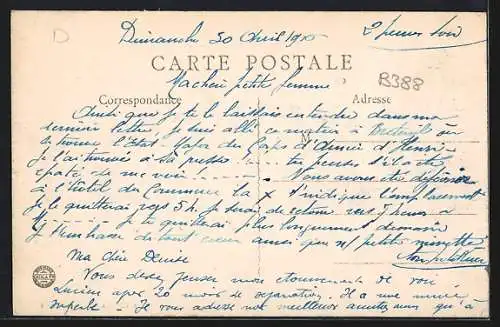 D
Dimanche 30 Avril 191
2 heures soir
CARTE POSTALE
B388
Ma chère petite femme
Correspondance
Adresse
Ainsi que je te le laissais entendre dans ma
dernière lettre je suis allé ce matin à Breteuil où
se trouve l'Etat Major du Corps d'Armée d'Henri
je l'ai trouvé à sa tu penses s'il a été
épaté de me voir! Nous avons été déjeuner
à l'Hôtel du Commerce la X t'indique l'emplacement
Je le quitterai vers 5 h. Je serai de retour vers 7 heures à
M Je t'écrirai plus longuement demain
Je t'embrasse de tout cœur ainsi que petite
Ma chère Denise
Vous devez penser mon étonnement de voir
Lucien après 20 mois de séparation. Il a une mine
superbe. Je vous adresse nos meilleures amitiés ainsi qu'à